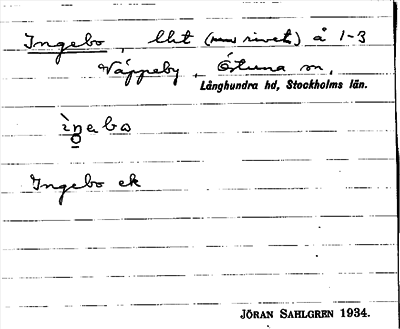 Ingebo, lht (nu rivet) å 1-3
Väppeby, Östuna sn,
Långhundra hd, Stockholms län.
Ingebo ek
JÖRAN SAHLGREN 1934.